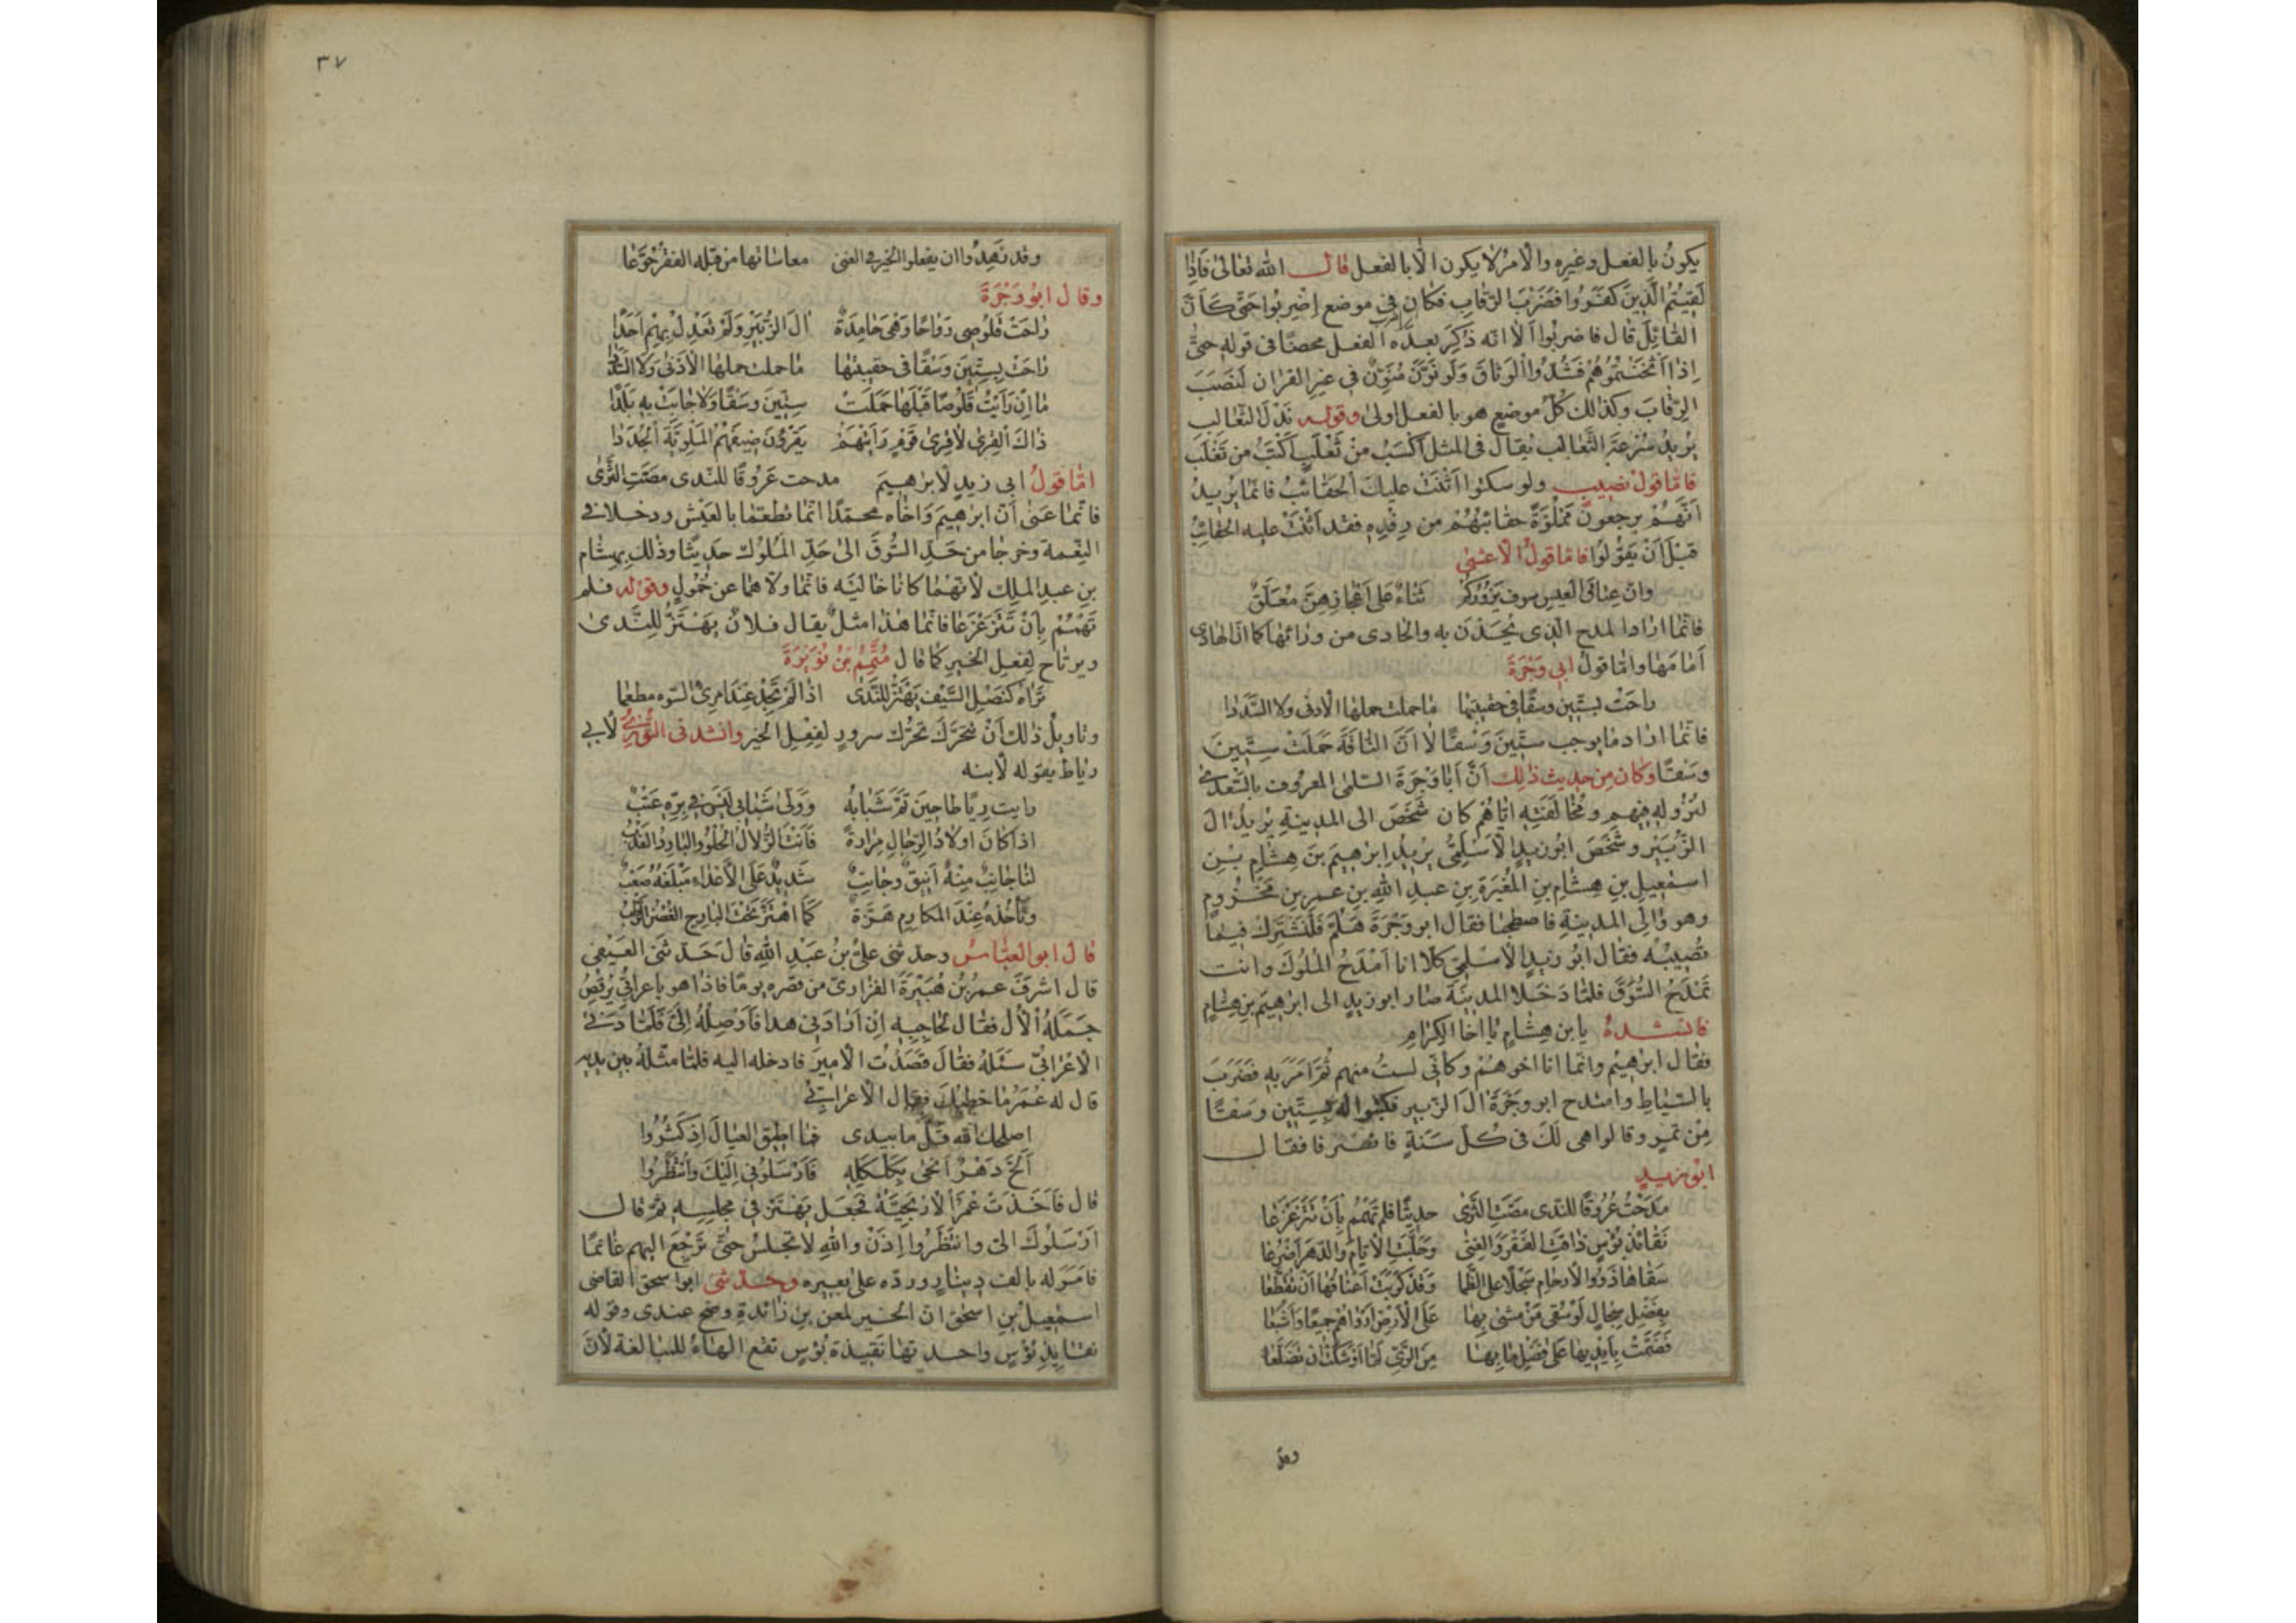 يكونُ بالفعل وغيره والأمرُ لا يكون الّا بالفعل قال الله تعالى فَاِذا
لَقيتُمُ الَّذينَ كَفَرُوا فَضَرْبَ الرِّقابِ فكان في موضع اِضربوا حتى كأنَّ
القائِلَ قال فاضربُوا ألا انّه ذكرَ بعده الفعل محضًا في قوله حتى
اِذا أثخنتُمُوهُم فَشُدُّوا الوَثاقَ ولو نوَّنَ مُنَوِّنٌ في غير القران لنصَبَ
الرِّقابَ وكذلك كلُّ موضعٍ هو بالفعل اولى وقوله نَدْلَ الثعالب
يُريدُ سُرْعَةَ الثَّعالب يقال في المثل أكسَبُ من ثعْلَبٍ
فامّا قول نصيب ولو سكتوا أثنَتْ عليكَ الحقائبُ فانّما يريدُ
اَنّهُم يرجعون مَمْلُوّةً حقائبُهُمْ من رِفْدِهِ فقد اَثْنَتْ عليه الحقائبُ
قَبْلَ اَنْ يَقُولُوا فامّا قولُ الأعشى
وانّ عِتاقَ العيسِ سوف يزُورُكُمْ ثَناءٌ عَلى اَعْجازِهِنَّ مُعَلَّقُ
فانّما ارادَ المدحَ الّذى يُحْدَيْنَ به والحادى من ورائها كما انّ الهادى
أمامَها وامّا قولُ ابى وَجْزَةَ
راحَتْ بستّين وسقًا فى حقيبتها ما حملت حملها الأدنى ولا السَّدَدا
فانّما اراد ما يوجب ستّينَ وَسْقًا لا اَنَّ النّاقَةَ حَمَلَتْ سِتّينَ
وَسْقًا وكان مِن حديث ذلكَ اَنَّ اَبا وَجْزَةَ السّلمى المعروف بالسَّعدى
لنُزُوله فيهم ومُحالَفَتِه ايّاهُم كان شَخَصَ الى المدينةِ يُريدُ الَ
الزُّبَيْرِ وشَخَصَ ابُو زيدٍ الأسْلَمِىُّ يريدُ اِبرهيمَ بنَ هِشامِ بنِ
اسمعيلَ بنِ هشامِ بنِ المُغيرَةِ بنِ عبدِ اللهِ بنِ عمر بن مَخْزومٍ
وهو والى المدينةِ فاصطحبا فقال ابو وَجْزَةَ هَلُمَّ فَلْنَشْتَرِكْ فيما
نُصيبُهُ فقال ابُو زيدٍ الأسْلمىّ كلّا انا اَمْدَحُ المُلُوكَ وانت
تَمْدَحُ السُّوَقَ فلمّا دَخَلا المدينةَ صار ابو زيدٍ الى ابرهيمَ بنِ هشامٍ
فانشدهُ يا بن هِشامٍ يا اخا الكِرامِ
فقال ابرهيمُ وانّما انا اخوهُمْ وكانّى لستُ منهم ثُمَّ اَمَرَ به فضُرِبَ
بالسّياطِ وامتدح ابو وَجْزَةَ الَ الزّبير فكتبوا اله بستّين وَسْقًا
مِنْ تمرٍ وقالوا هى لَكَ فى كُلِّ سَنَةٍ فانصرفا فقال
ابو زيدٍ
مَدَحْتُ عُرُوقًا للنّدى مَصَّتِ الثَّرى حديثًا فلم تَهْمُمْ بِاَنْ تَتَزَعْزَعا
نَقائِذُ بُؤْسٍ ذاقَتِ الفَقْرَ وَالغِنى وحَلَّبَتِ الأيّامُ والدّهرَ اَضْرُعا
سَقاها ذَوُوا الأرحامِ سَجْلًا على الظّما وَقَدْ كَرَبَتْ اَعْناقُها اَنْ تُقَطَّعا
بِفَضْلِ سِجالٍ لَوْ سُقى مَنْ مشى بها عَلى الأرْضِ اَرْواهُم جميعًا وَاَشبَعا
فَضَمَّتْ بِاَيْديها عَلى فَضْلِ ما بِها مِنَ الرّىِّ لمّا اَوْشَكَتْ اَنْ تَضَلَّعا
وقد
٣٧
وقد زَهِدُوا ان يفعلوا الخيرَ فى الغنى مِن قبله الفقرُ جُوَّعا
وقال ابُو وَجْزَةَ
راحَتْ قَلُوصى رَواحًا وَهْىَ حامِدَةٌ الَ الزُّبَيْرِ وَلَمْ تَعْدِلْ بِهِمْ اَحَدًا
راحَتْ بِسِتّينَ وَسْقًا فى حقيبتها ما حملت حملها الأدْنى ولا السَّدَدا
ما اِنْ رَاَيْتُ قَلُوصًا قَبْلَها حَمَلَتْ سِتّينَ وسقًا ولا جابَتْ بِه بَلَدًا
ذاكَ القِرى لا قِرى قَوْمٍ رَاَيْتُهُمُ يَقْرُونَ ضَيْفَهُمُ المَلوِيَّةَ الجُدُدا
امّا قولُ ابى زيدٍ لأبرهيمَ مدحت عُرُوقًا للنّدى مصّتِ الثّرى
فانّما عَنى اَنَّ ابرهيمَ وَاخاه محمّدًا انّما تطعّما بالعَيْش ودخلا فى
النّعمة وخرجا من حَدِّ السُّوَقِ الى حَدِّ المُلُوكِ حديثًا وذلك بهشام
بن عبد الملِك لأنّهُما كانا خالَيْهِ فانّما ولّاهما عن خُمُولٍ وقوله فلم
تَهْمُمْ بِاَنْ تَتَزَعْزَعا فانّما هذا مثلٌ يقال فلانٌ يَهْتَزُّ لِلنَّدى
ويرتاح لِفِعلِ الخيرِ كما قال مُتَمِّمُ بنُ نُوَيْرَةَ
تَراهُ كَنَصْلِ السَّيْفِ يَهْتَزُّ للنَّدى اذا لم تَجِدْ عِنْدَ امرئِ السّوء مطعما
وتاويلُ ذلك اَنْ تتحرَّكَ تحرُّكَ سرورٍ لفِعْلِ الخيرِ وانشدنى التَّوّزىُّ لأبى
رباط يقوله لأبنه
رايت رِباطًا حينَ تَمَّ شَبابُهُ ووَلّى شَبابى لَيْسَ فى بِرِّه عَتْبُ
اذا كانَ اولادُ الرّجالِ مرارةً فَاَنْتَ الحَلالُ الحُلْوُ والبارِدُ العَذْبُ
لنا جانِبٌ مِنْهُ اَنيقٌ وجانبٌ شَديدٌ عَلَى الأعْداءِ مَبْلَغُهُ صَعْبُ
وتَأخُذُهُ عِنْدَ المكارِمِ هَزَّةٌ كَما اهْتَزَّ تَحْتَ البارِحِ الغُصُنُ الرَّطْبُ
قال ابو العبّاسِ وحدّثنى علىُّ بنُ عَبْدِ اللهِ قال حَدَّثَنى العُتْبى
قال اَشرفَ عمرُ بنُ هُبَيْرَةَ الفزارىّ من قصره يومًا فاذا هو باعرابىٍّ يُرقِصُ
جَمَلَهُ الأل فقال لحاجبه اِنْ ارادنى هذا فَاَوْصِلْهُ اِلَىَّ فلمّا دَنى
الأعْرابىّ سَئَلهُ فقال قَصَدْتُ الأميرَ فادخله اليه فلمّا مثّلهُ بين يديه
قال له عُمَرُ ما خَطْبُكَ فقال الأعرابىُّ
اصلحك الله قَلَّ ما بيدى فما اُطيقُ العيالَ اِذْ كَثُرُوا
اَلَحَّ دَهْرٌ اَنْحى بِكَلْكَلِهِ فَاَرْسَلُونى اِلَيْكَ وانْتَظَرُوا
قال فاَخَذَتْ عُمَرَ الأرْيَحِيَّةُ فجعلَ يَهْتَزُّ فى مجلسِه ثمّ قال
اَرْسَلُوكَ الىّ وانتظَرُوا اِذَنْ واللهِ لا تجلسُ حتّى تَرْجِعَ اليهم غانمًا
فامَرَ له بالف دينارٍ وردّه على بعيره وحدّثنى ابو اسحق القاضى
اسمعيلُ بنِ اسحق انّ الخبر لمعن بن زائدةٍ وصحّ عندى وقوله
نقائِذِ بُؤْسٍ واحدتها نقيذة بُؤْسٍ تقع الهاءُ للمبالغة لأنّ